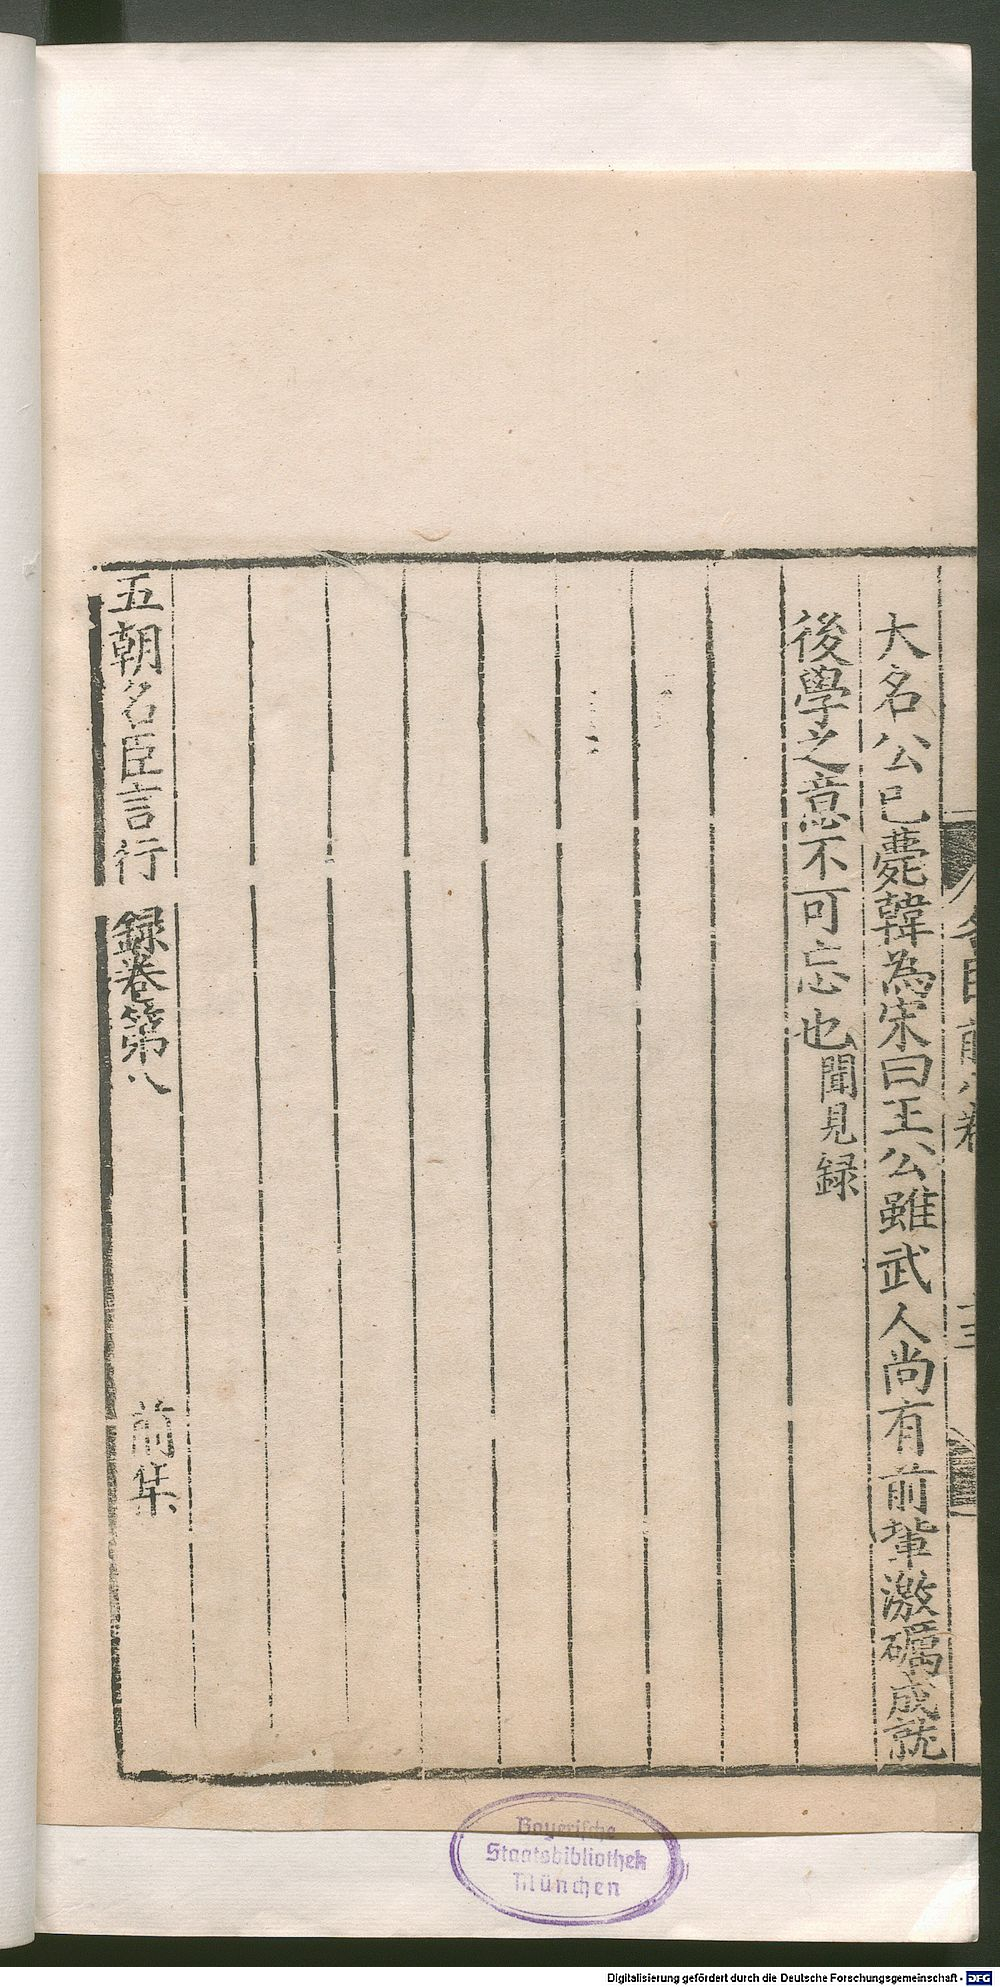 大名公已薨韓為宋曰王公雖武人尚有前輩激礪成就
後學之意不可忘也聞見録
五朝名臣言行録卷第八 前集
名臣前八卷
Bayerische
Staatsbibliothek
München
Digitalisierung gefördert durch die Deutsche Forschungsgemeinschaft - DFG